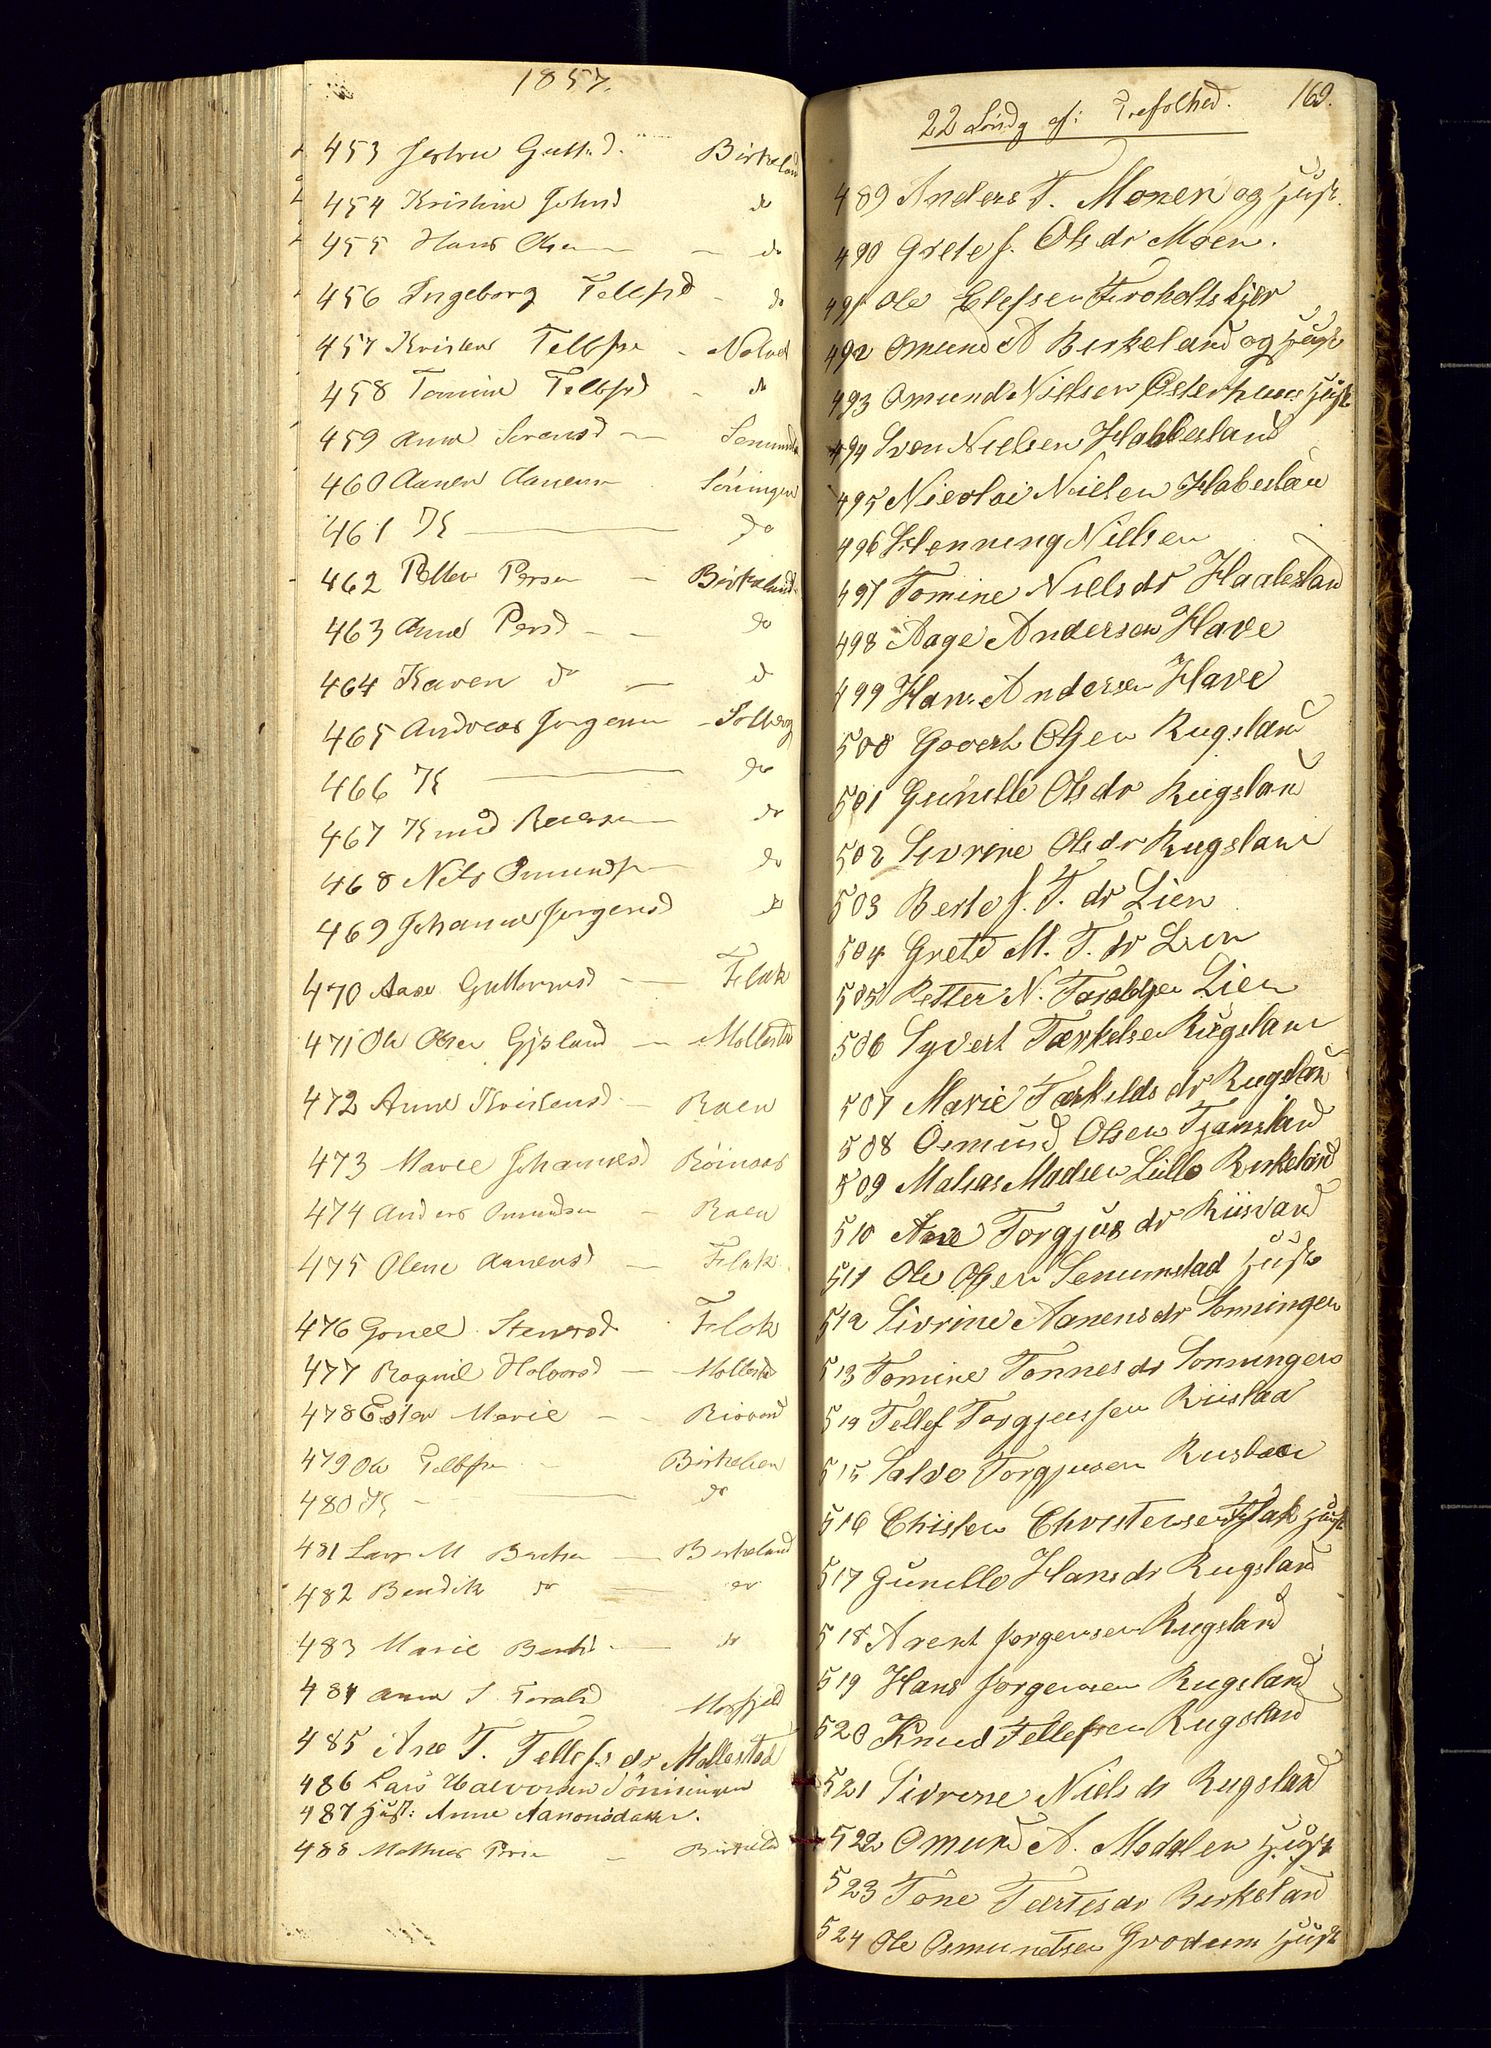 1857.
453 Gutts.d. Birkeland
454 Kristine Johnsd do
455 Hans Olsen do
456 Ingeborg Tellefsd do
457 Kristens Tellefsen
458 Tomine Tellefsd do
459 Anne Sørensd
460 Aanen Aanensen Sønningen
461 K do
462 Petter Persen Birkeland
463 Anne Persd do
464 Karen do d
465 Andreas Jørgensen Solberg
466 K do
467 Knud do
468 Nels Omundsen do
469 Johanne Jørgensd do
470 Aase Guttormsd Flak
471 Ole Olsen Mollestad
472 Anne Kristensd Raen
473 Maree Johannesd
474 Anders Omundsen Raen
475 Olene Aanensd Flak
476 Gonel Flak
477 Raguil Halvorsd Mollestad
478 Ester Marie Risvand
479 Ole Tellefsen Birkeland
480 K do
481 Lars M Birkeland
482 Bendik do do
483 Marie do
484 Anne
485 Ane T. Tellefs dr Mollestad
486 Lars Halvorsen Sönningen
487 Hust: Anne Aanonsdatter.
488 Mathias Birkeland
169.
22 Søndg ef: Trefolhed.
489 Anders T. Monen og Hust.
490 Grete J. Ols dr Moen.
491 Ole Elefsen
492 Omund A Birkeland og Hust
493 Omund Nielsen Hust
494 Sven Nielsen Habbesland
495 Nicolai Nielsen Habeslan
496 Henning Nielsen
497 Tomine Niels dr
498 Aage Andersen Have
499 Hans Andersen Have
500 Govert Olsen Rugsland
501 Gunille Ols dr Rugsland
502 Sivrine Ols dr Rugslan
503 Berte J. T. dr Lien
504 Grete M. T. dr Lien
505 Petter N. Lien
506 Syvert Tærkelsen Rugslan
507 Marie Tærkelds dr Rugslan
508 Osmund Olsen Tjamsland
509 Matias Madsen Lille Birkeland
510 Ane Torgjus dr Riisvand
511 Ole Olsen Senumstad Hust
512 Sivrine Aanens dr Sønningen
513 Tomine Tønnes dr Sønningen
514 Tellef Torgjussen
515 Salve Torgjusen
516 Chisten Christensen Flak Hust
517 Gunille Hans dr Rugsland
518 Arent Jorgensen Rugsland
519 Hans Jorgensen Rugsland
520 Knud Tellefsen Rugsland
521 Sivrine Niels dr Rugsland
522 Omund A. Modalen Hust
523 Tone dr Birkeland
524 Ole Osmundsen Grodum Hust